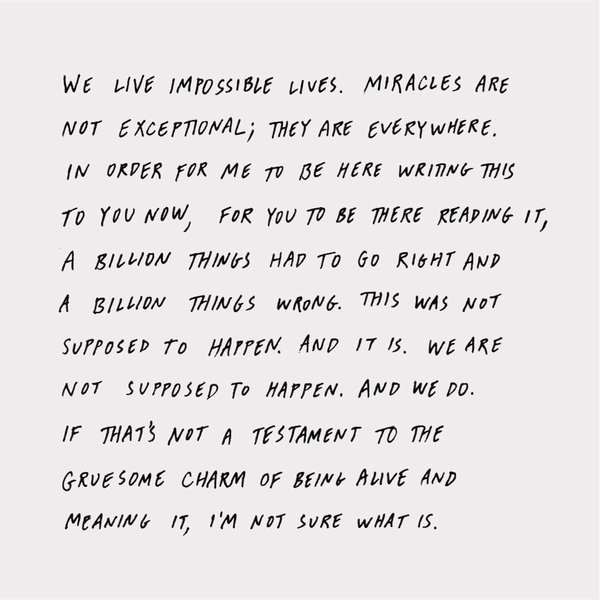 WE LIVE IMPOSSIBLE LIVES. MIRACLES ARE
NOT EXCEPTIONAL; THEY ARE EVERYWHERE.
IN ORDER FOR ME TO BE HERE WRITING THIS
TO YOU NOW, FOR YOU TO BE THERE READING IT,
A BILLION THINGS HAD TO GO RIGHT AND
A BILLION THINGS WRONG. THIS WAS NOT
SUPPOSED TO HAPPEN. AND IT IS. WE ARE
NOT SUPPOSED TO HAPPEN. AND WE DO.
IF THAT'S NOT A TESTAMENT TO THE
GRUESOME CHARM OF BEING ALIVE AND
MEANING IT, I'M NOT SURE WHAT IS.